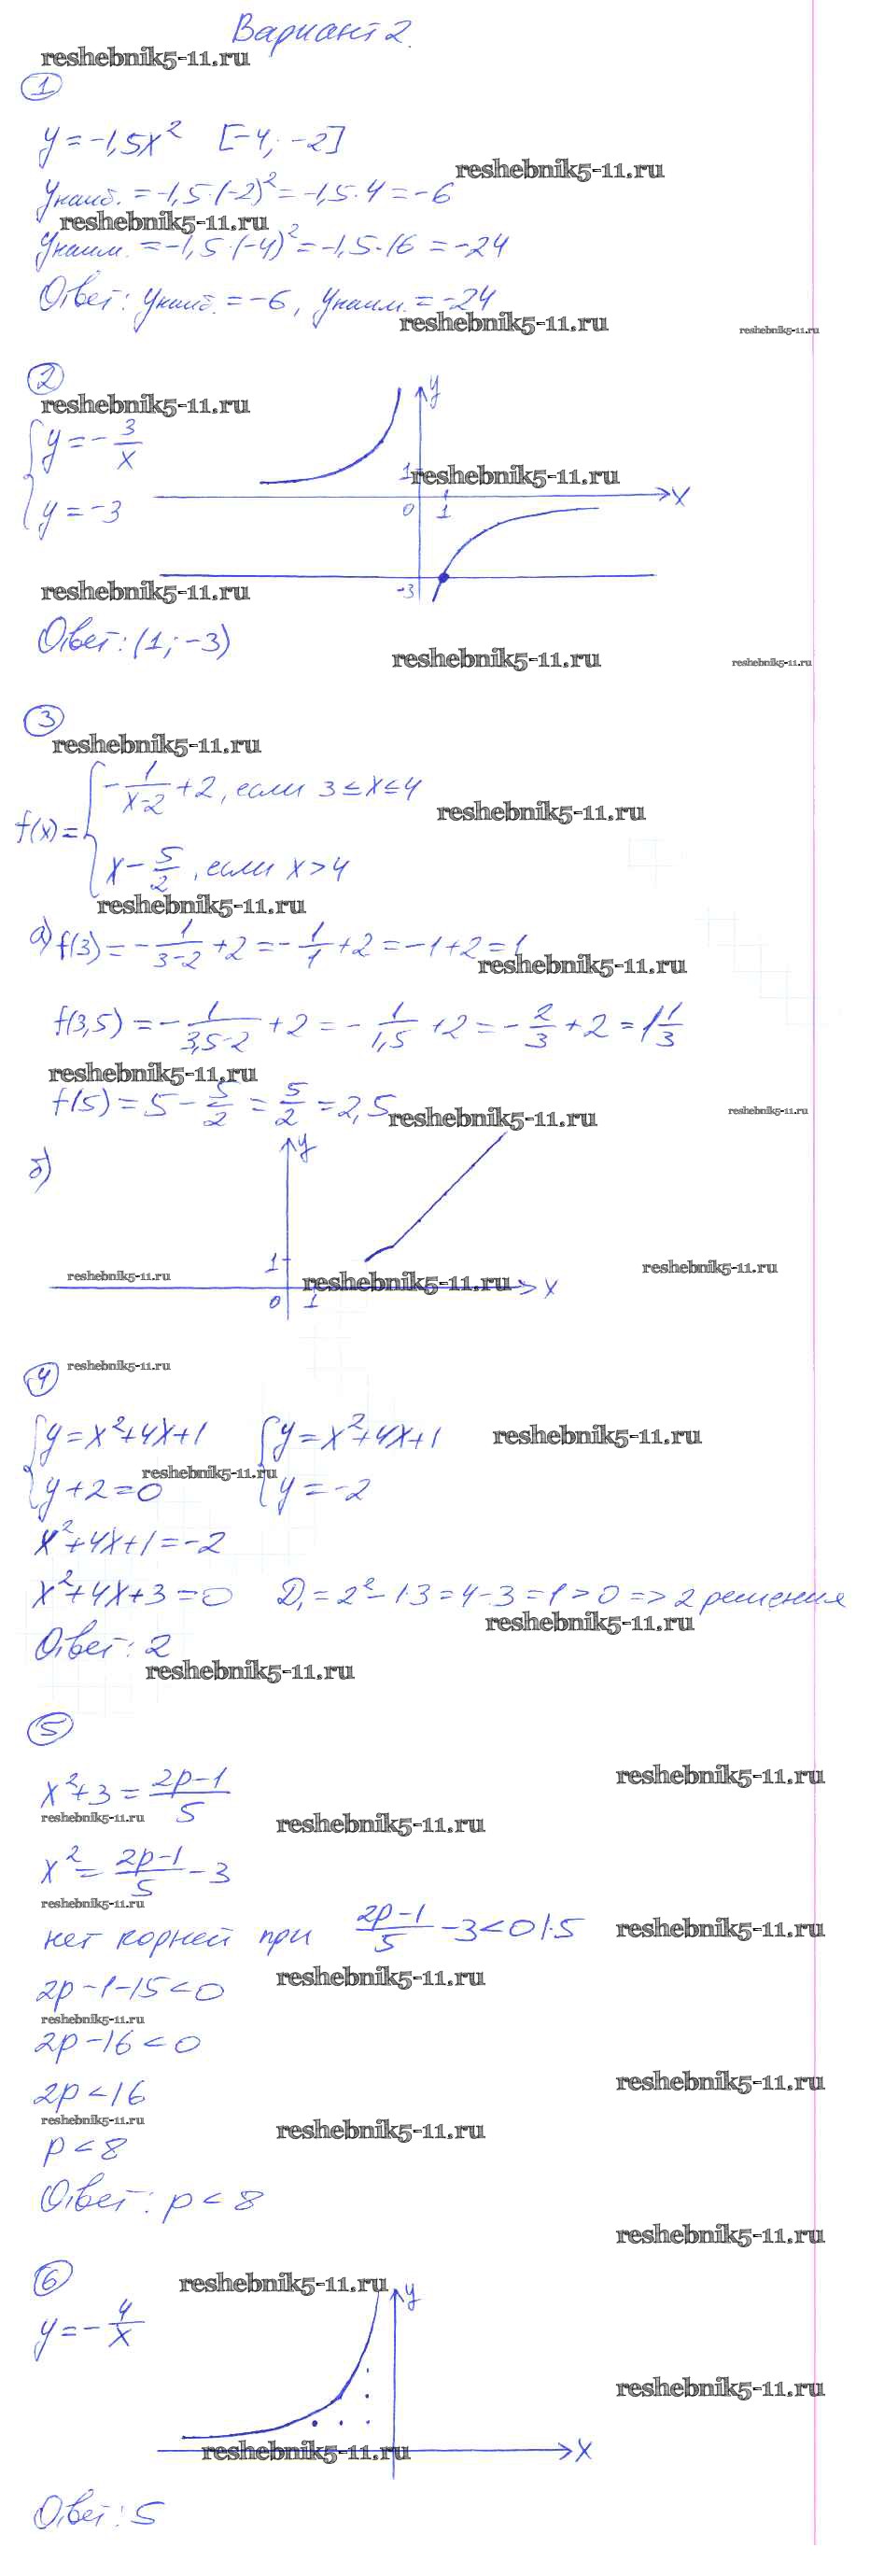 Вариант 2.
reshebnik5-11.ru
1
y = -1,5x² [-4; -2]
reshebnik5-11.ru
yнаиб. = -1,5·(-2)² = -1,5·4 = -6
reshebnik5-11.ru
yнаим. = -1,5·(-4)² = -1,5·16 = -24
Ответ: yнаиб. = -6, yнаим. = -24
reshebnik5-11.ru reshebnik5-11.ru
2
reshebnik5-11.ru
y
{ y = -3/x
1 reshebnik5-11.ru
0 1 x
y = -3
reshebnik5-11.ru
-3
Ответ: (1; -3)
reshebnik5-11.ru reshebnik5-11.ru
3
reshebnik5-11.ru
f(x) = { -1/(x-2) + 2, если 3 ≤ x ≤ 4
reshebnik5-11.ru
x - 5/2, если x > 4
reshebnik5-11.ru
а) f(3) = -1/(3-2) + 2 = -1/1 + 2 = -1 + 2 = 1
reshebnik5-11.ru
f(3,5) = -1/(3,5-2) + 2 = -1/1,5 + 2 = -2/3 + 2 = 1 1/3
reshebnik5-11.ru
f(5) = 5 - 5/2 = 5/2 = 2,5
reshebnik5-11.ru reshebnik5-11.ru
б)
y
1
reshebnik5-11.ru reshebnik5-11.ru reshebnik5-11.ru
0 1 x
4
reshebnik5-11.ru
{ y = x² + 4x + 1 { y = x² + 4x + 1
reshebnik5-11.ru
reshebnik5-11.ru
y + 2 = 0 y = -2
x² + 4x + 1 = -2
x² + 4x + 3 = 0 D₁ = 2² - 1·3 = 4 - 3 = 1 > 0 => 2 решения
reshebnik5-11.ru
Ответ: 2
reshebnik5-11.ru
5
x² + 3 = (2p-1)/5
reshebnik5-11.ru
reshebnik5-11.ru reshebnik5-11.ru
x² = (2p-1)/5 - 3
reshebnik5-11.ru
нет корней при (2p-1)/5 - 3 < 0 |·5
reshebnik5-11.ru
2p - 1 - 15 < 0
reshebnik5-11.ru
reshebnik5-11.ru
2p - 16 < 0
2p < 16
reshebnik5-11.ru
reshebnik5-11.ru reshebnik5-11.ru
p < 8
Ответ: p < 8
reshebnik5-11.ru
6
reshebnik5-11.ru
y
y = -4/x
reshebnik5-11.ru
reshebnik5-11.ru
x
Ответ: 5